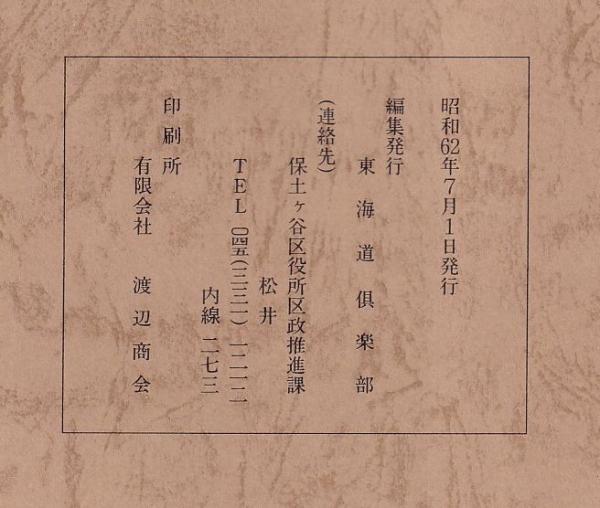 昭和62年7月1日発行
編集発行
東海道倶楽部
(連絡先)
保土ヶ谷区役所区政推進課
松井
TEL 〇四五(三三一)一二一二
内線 二七三
印刷所
有限会社 渡辺商会